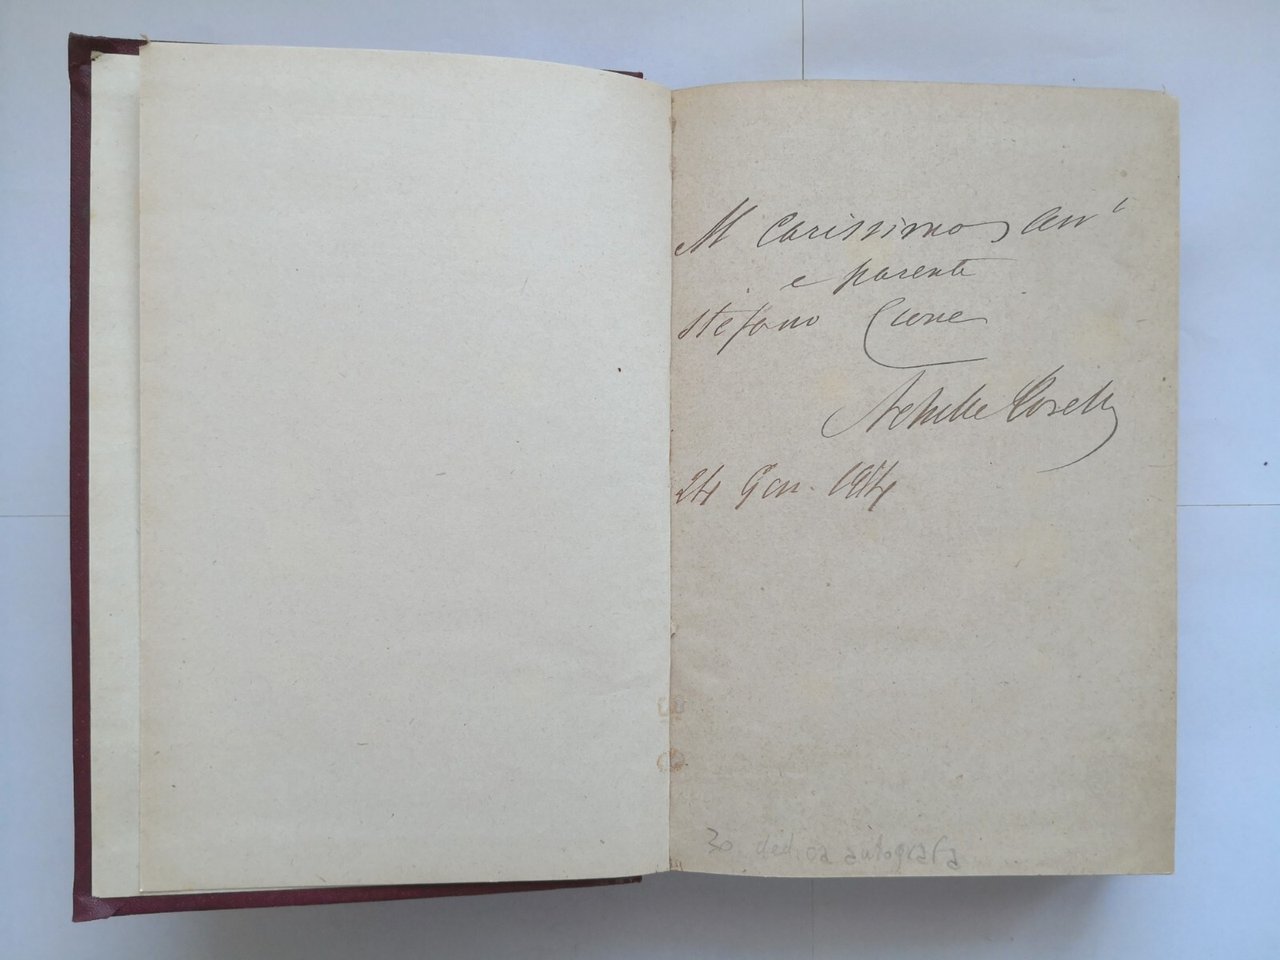 Al carissimo am°
e parente
Stefano Cione
Achille Torelli
24 Gen. 1914
30 dedica autografa